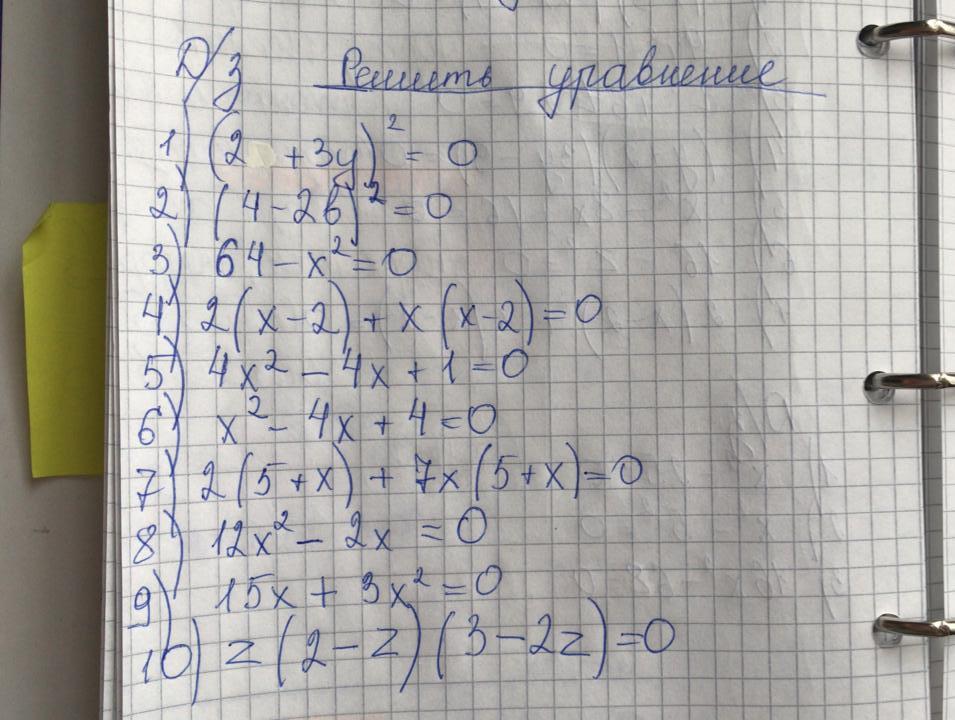 Д/з Решить уравнение
1) (2 + 3y)² = 0
2) (4 - 2b)² = 0
3) 64 - x² = 0
4) 2(x - 2) + x(x - 2) = 0
5) 4x² - 4x + 1 = 0
6) x² - 4x + 4 = 0
7) 2(5 + x) + 7x(5 + x) = 0
8) 12x² - 2x = 0
9) 15x + 3x² = 0
10) z(2 - z)(3 - 2z) = 0